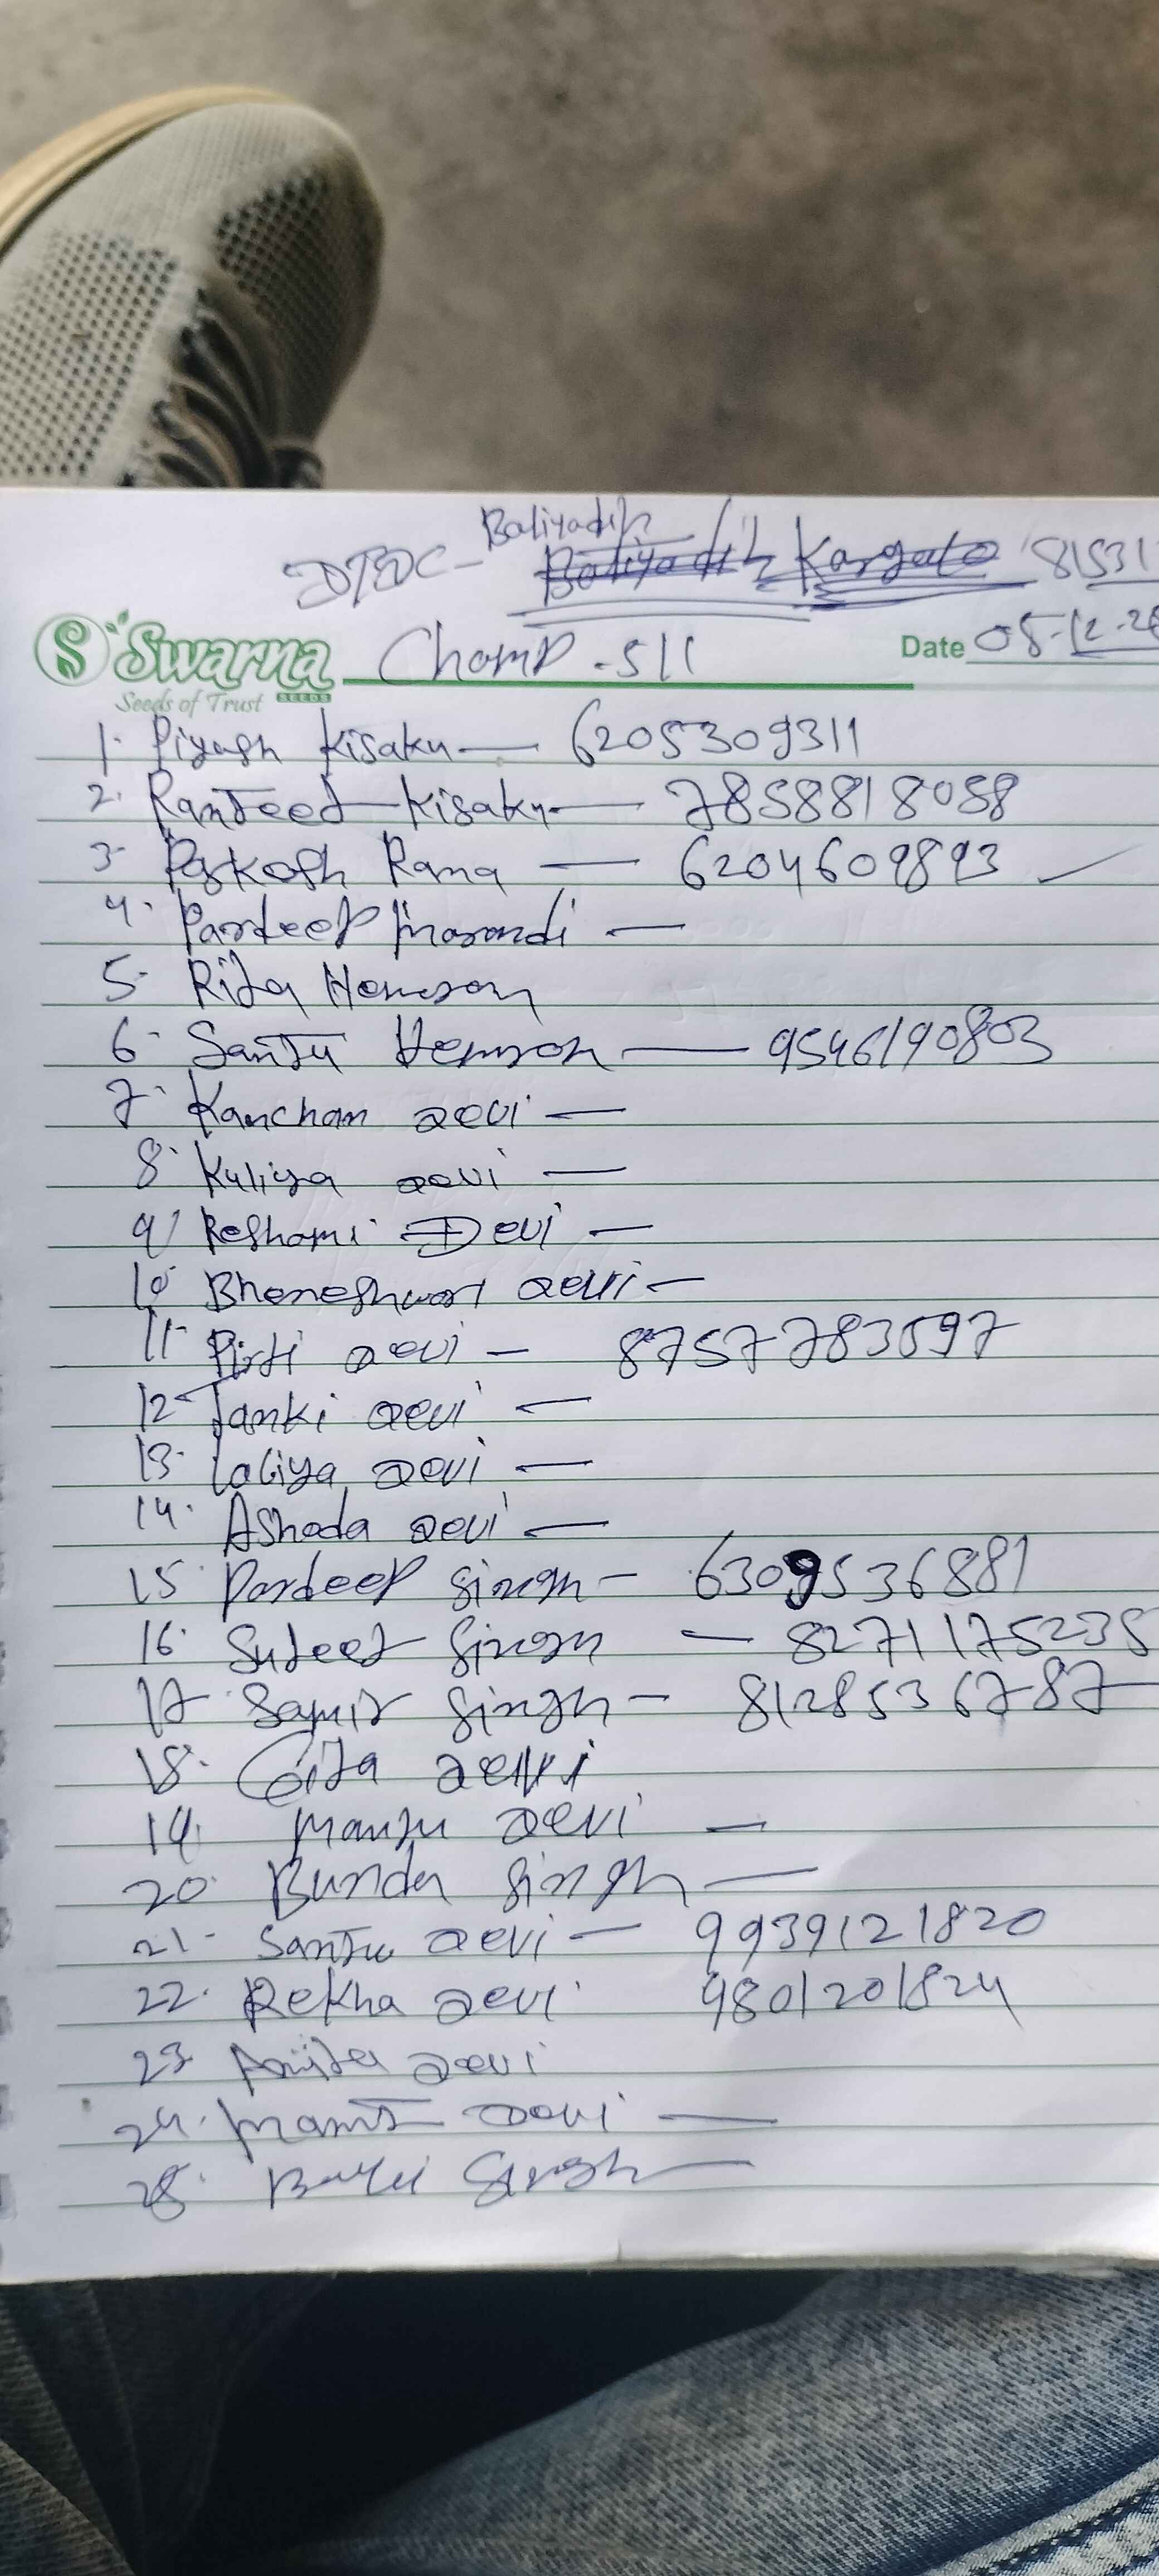 Baliyadih
DTDC - Baliyadih Kargalo 81531
Swarna
SEEDS
Seeds of Trust
Champ - 511
Date 05-12-2
1. Piyush Kisaku — 6205309311
2. Ranjeet Kisaku — 7858818058
3. Parkash Rana — 6204609893
4. Pardeep Marandi —
5. Rita Hemron
6. Sanju Hemron — 9546190803
7. Kanchan Devi —
8. Kuliya Devi —
9 Reshami Devi —
10 Bhoneshwari Devi —
11. Pirti Devi — 8757783597
12 Janki Devi —
13. Laliya Devi —
14. Ashoda Devi —
15. Pardeep Singh — 6309536881
16. Sujeet Singh — 8271175235
17 Samir Singh — 8128536787
18. Gita Devi
19. Manju Devi —
20. Bunda Singh —
21. Sanju Devi — 9939121820
22. Rekha Devi 9801201824
23 Anita Devi
24. Devi —
25. Singh —